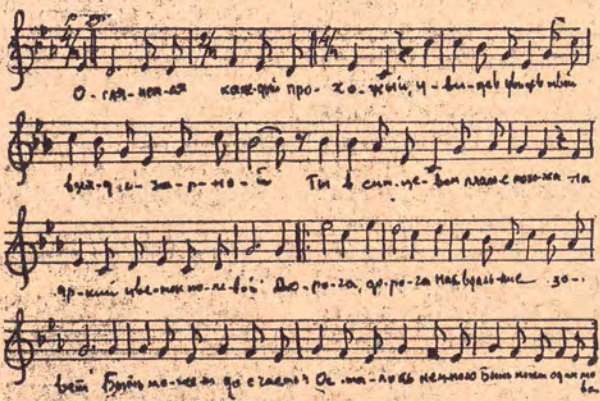 О-гля-нет-ся каж-дый про-хо-жий, у-ви-дев твой
взгляд Ты в сит-це-вом платье похожа на
яр-кий цве-ток по-ле-вой До-ро-га, до-ро-га нас в даль-ние зо-
вёт Быть мо-жет до счастья Ос-та-лось немного Быть может один по
во